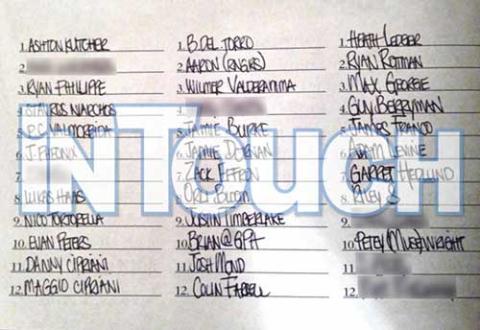 1. ASHTON KUTCHER
2.
3. RYAN PHILIPPE
4. STAVROS NIARCHOS
5.
6. J. PHEONIX
7.
8. LUKAS HAAS
9. NICO TORTORELLA
10. EVAN PETERS
11. DANNY CIPRIANI
12. MAGGIO CIPRIANI
1. B. DEL TORRO
2. AARON
3. WILMER VALDERAMMA
4.
5. JAMIE BURKE
6. JAMIE DORNAN
7. ZACK EFFRON
8. ORLI BLOOM
9. JUSTIN TIMBERLAKE
10. BRIAN @ GPA
11. JOSH MOND
12. COLIN FARRELL
1. HEATH LEDGER
2. RYAN ROTTMAN
3. MAX GEORGE
4. GUY BERRYMAN
5. JAMES FRANCO
6. ADAM LEVINE
7. GARRET HEDLUND
8.
9.
10. PETEY WRIGHT
11.
12.
INTOUCH